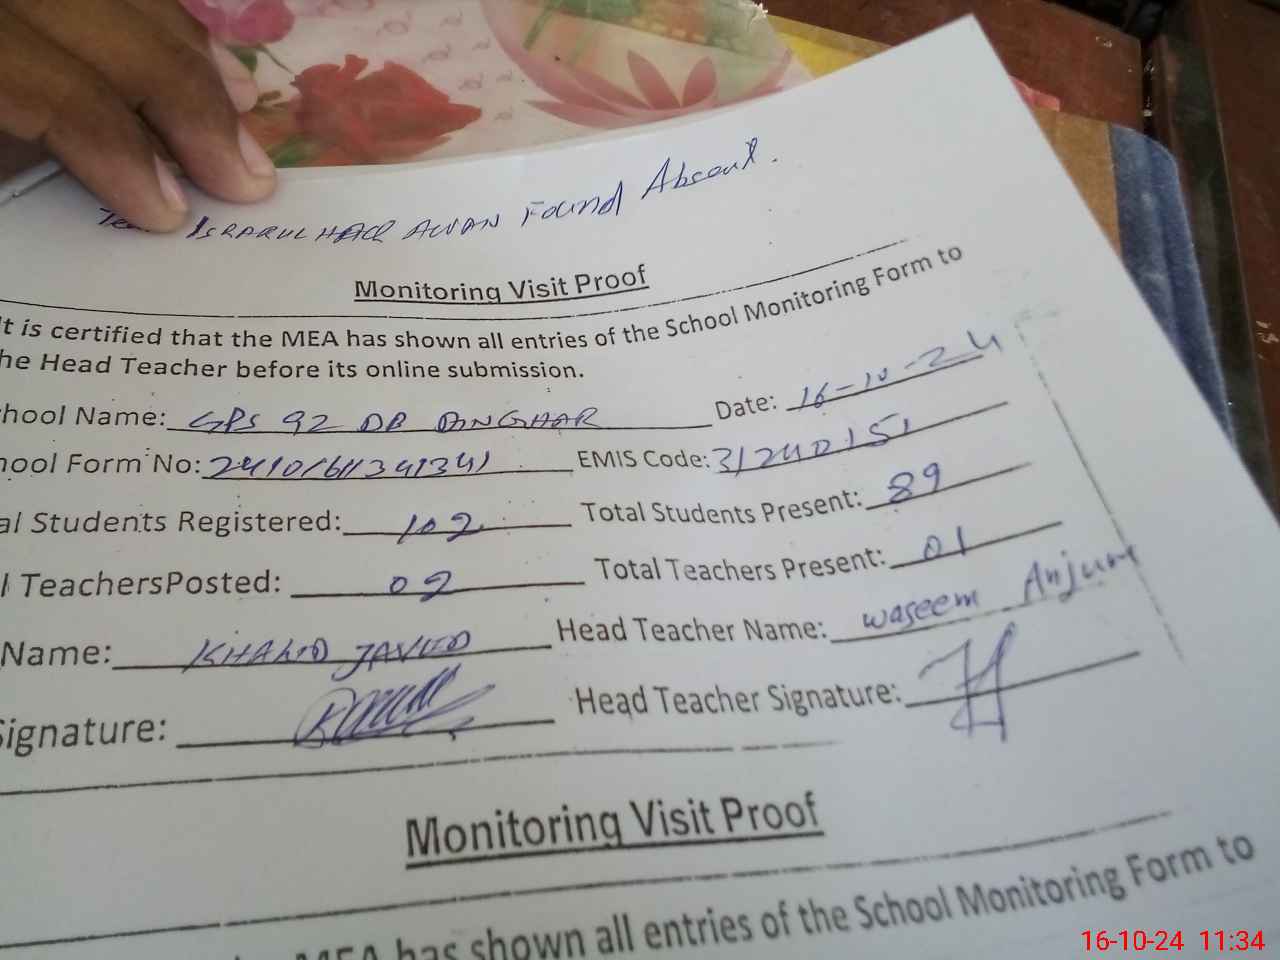 ISRARUL HAQ AWAN Found Absent.
Monitoring Visit Proof
It is certified that the MEA has shown all entries of the School Monitoring Form to
he Head Teacher before its online submission.
chool Name: GPS 92 DB Date: 16-10-24
hool Form No: EMIS Code: 31240151
al Students Registered: 102 Total Students Present: 89
l TeachersPosted: 02 Total Teachers Present: 01
Name: KHALID JAVED Head Teacher Name: Waseem Anjum
Signature: Head Teacher Signature:
Monitoring Visit Proof
MEA has shown all entries of the School Monitoring Form to
16-10-24 11:34